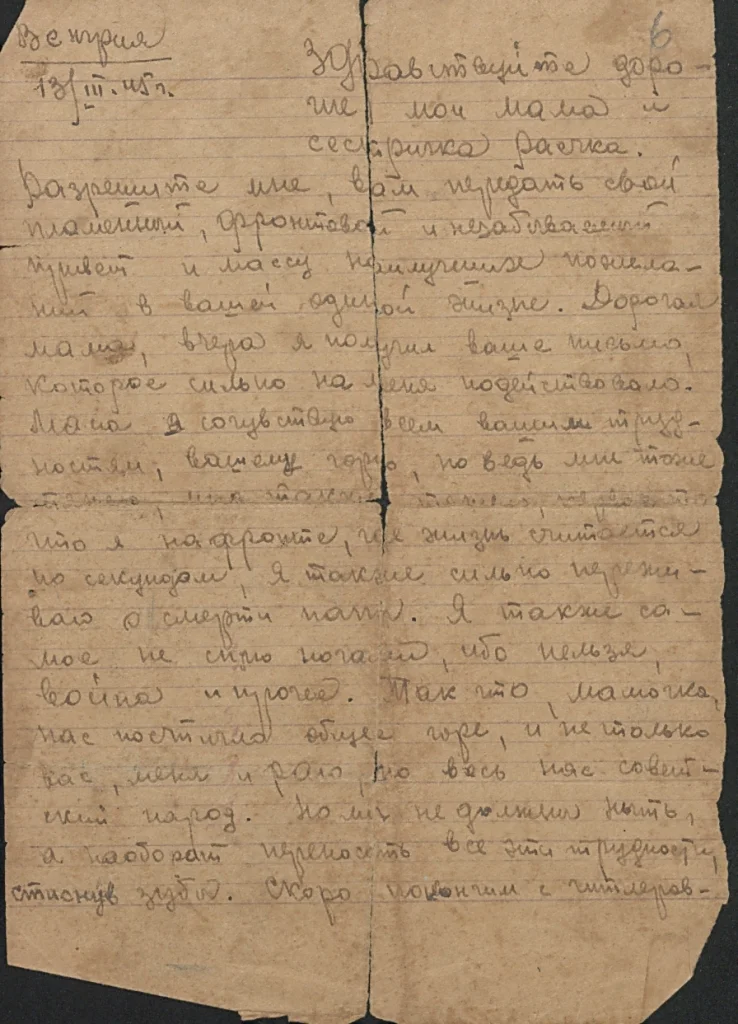 6
Венгрия
13/III.45г.
Здравствуйте доро-
гие мои мама и
сестричка Раечка.
Разрешите мне, вам передать свой
пламенный, фронтовой и незабываемый
привет и массу наилучших пожела-
ний в вашей одинокой жизне. Дорогая
мама, вчера я получил ваше письмо,
которое сильно на меня подействовало.
Мама я сочувствую всем вашим труд-
ностям, вашему горю, но ведь мне тоже
что я на фронте, где жизнь считается
по секундам, я также сильно пережи-
ваю о смерти папы. Я также са-
мое не сплю ночами, ибо нельзя,
война и прочее. Так что, мамочка,
нас постигла общее горе, и не только
вас, меня и Раю, но весь наш совет-
ский народ. Но мы не должны ныть,
а наоборот переносить все эти трудности,
стиснув зубы. Скоро покончим с гитлеров-